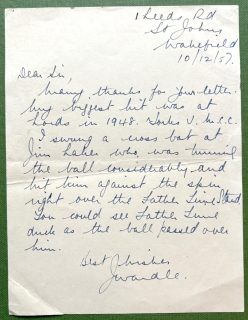 1 Leeds Rd
St Johns
Wakefield
10/12/57.
Dear Sir,
Many thanks for your letter.
My biggest hit was at
Lords in 1948. Yorks V. M.C.C.
I swung a cross bat at
Jim Laker who was turning
the ball considerably and
hit him against the spin
right over the Father Time Stand
You could see Father Time
duck as the ball passed over
him.
Best Wishes